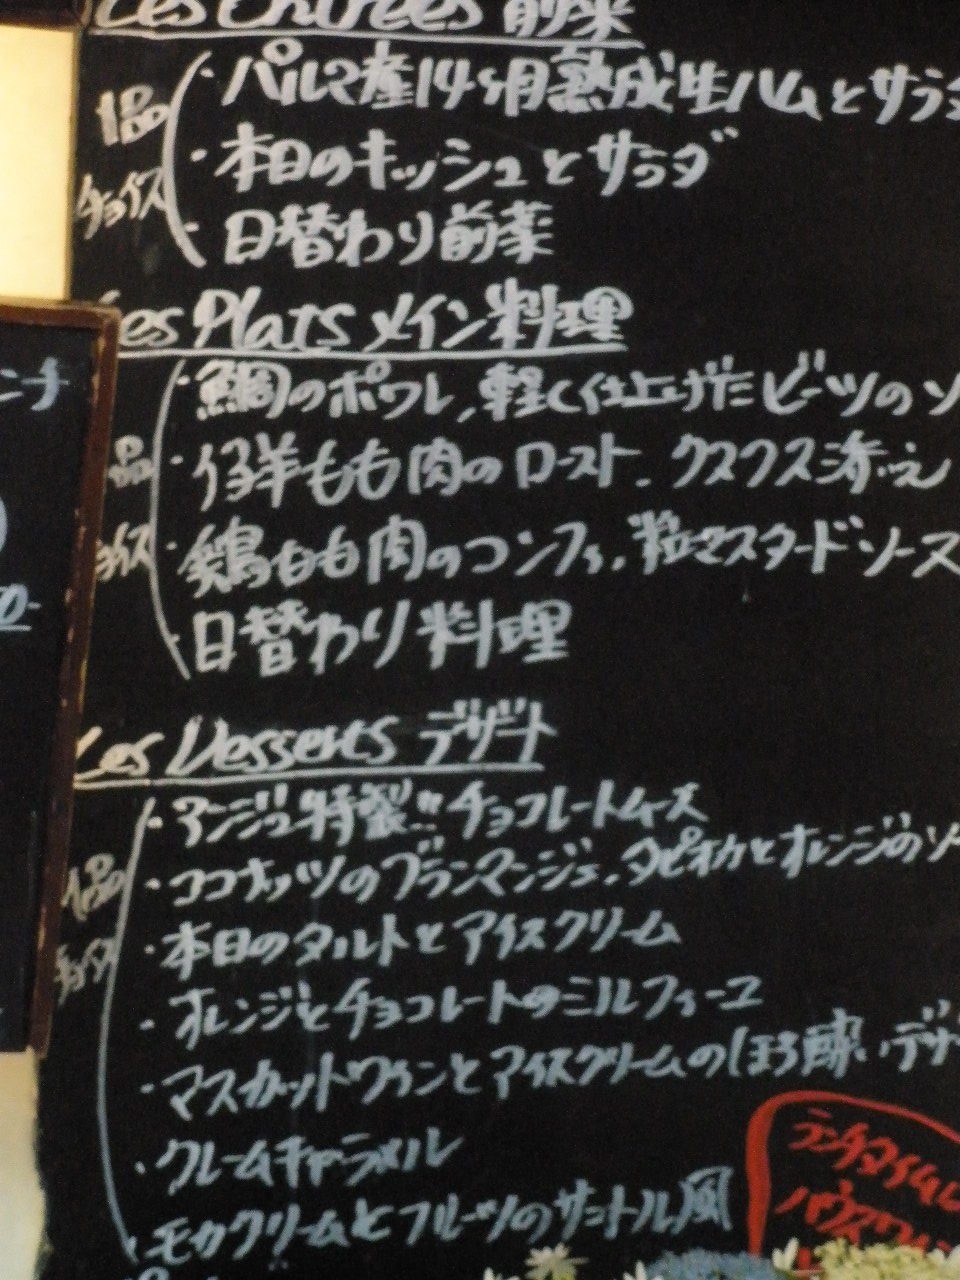 Les Entrées 前菜
1品
チョイス
・パルマ産14ヶ月熟成生ハムとサラダ
・本日のキッシュとサラダ
・日替わり前菜
Les Plats メイン料理
品
ョイス
・鯛のポワレ、軽く仕上げたビーツのソ
・仔羊もも肉のロースト、クスクス添え
・鶏もも肉のコンフィ、粒マスタードソース
日替わり料理
ンチ
Les Desserts デザート
1品
チョイス
・アンジュ特製!!チョコレートムース
・ココナッツのブランマンジェ、タピオカとオレンジのソー
・本日のタルトとアイスクリーム
・オレンジとチョコレートのミルフィーユ
・マスカットワインとアイスクリームのほろ酔いデザ
・クレームキャラメル
・モカクリームとフルーツのサントノレ風
ランチタイム
ハウスワイン